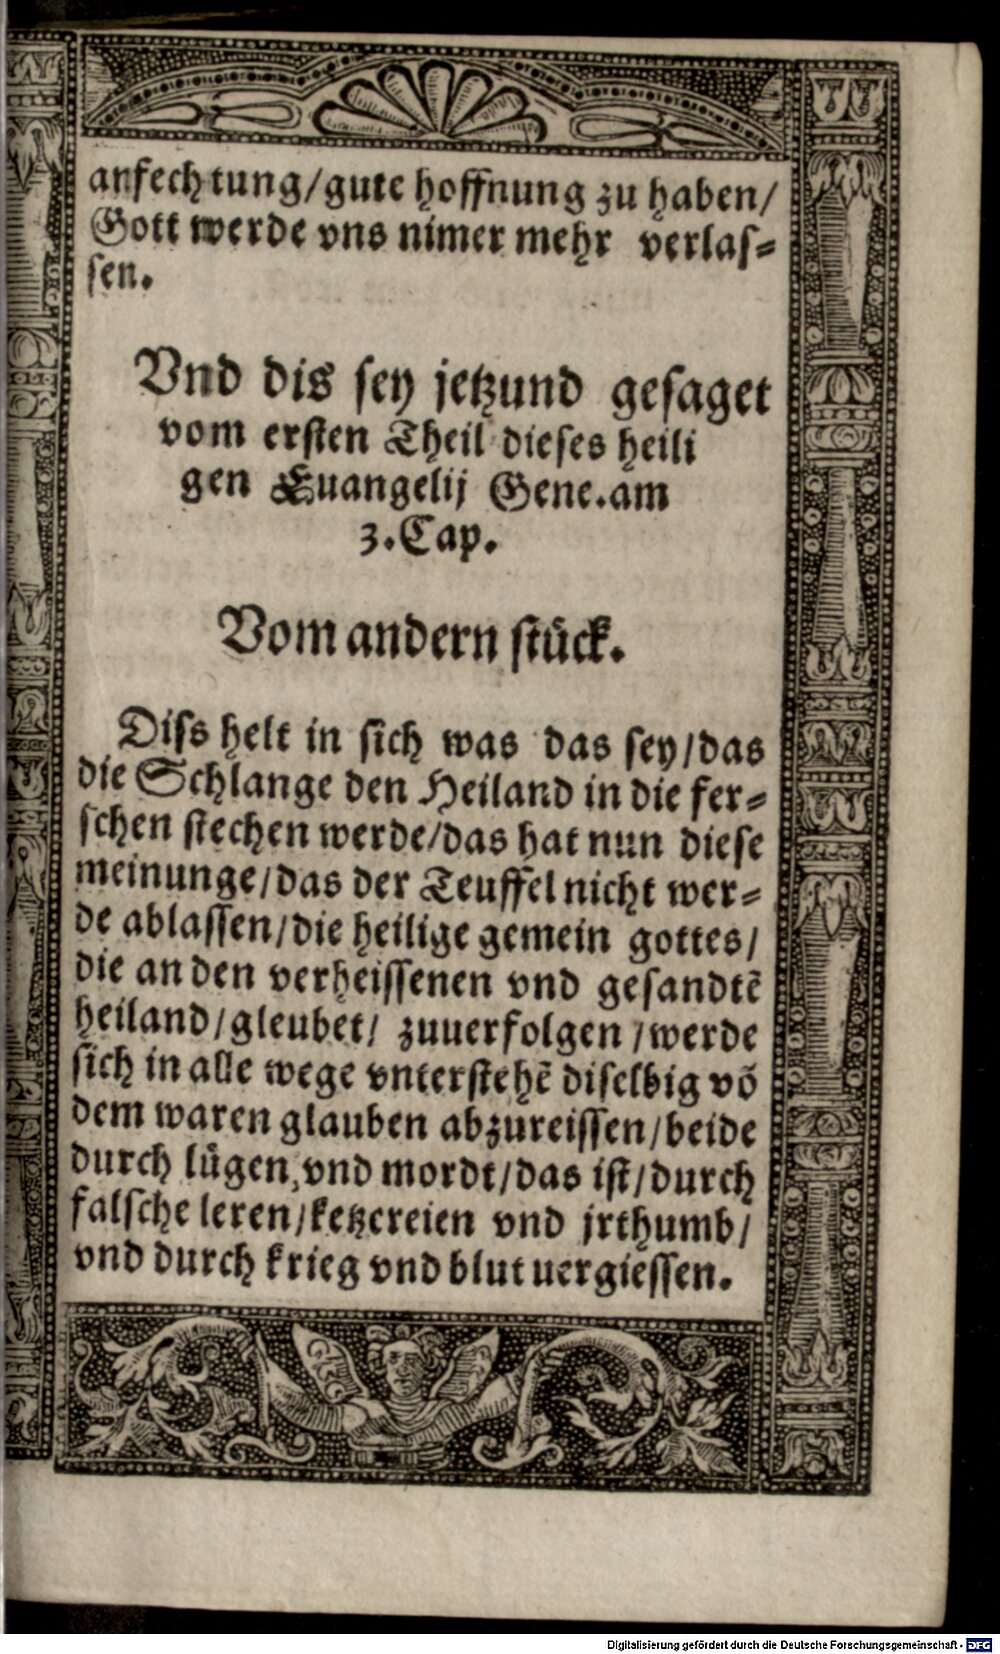 anfechtung/gute hoffnung zu haben/
Gott werde vns nimer mehr verlas-
sen.
Vnd dis sey jetzund gesaget
vom ersten Theil dieses heili
gen Euangelij Gene.am
3.Cap.
Vom andern stück.
Diss helt in sich was das sey/das
die Schlange den Heiland in die fer-
schen stechen werde/das hat nun diese
meinunge/das der Teuffel nicht wer-
de ablassen/die heilige gemein gottes/
die an den verheissenen vnd gesandtē
heiland/gleubet/ zuuerfolgen/werde
sich in alle wege vnterstehē diselbig vō
dem waren glauben abzureissen/beide
durch lügen,vnd mordt/das ist/durch
falsche leren/ketzereien vnd jrthumb/
vnd durch krieg vnd blut uergiessen.
Digitalisierung gefördert durch die Deutsche Forschungsgemeinschaft - DFG